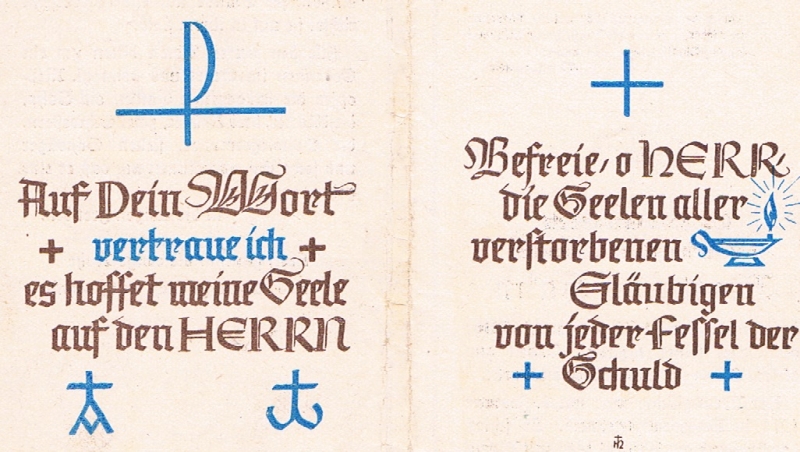 Auf Dein Wort
vertraue ich
es hoffet meine Seele
auf den HERRN
Befreie, o HERR,
die Seelen aller
verstorbenen
Gläubigen
von jeder Fessel der
Schuld